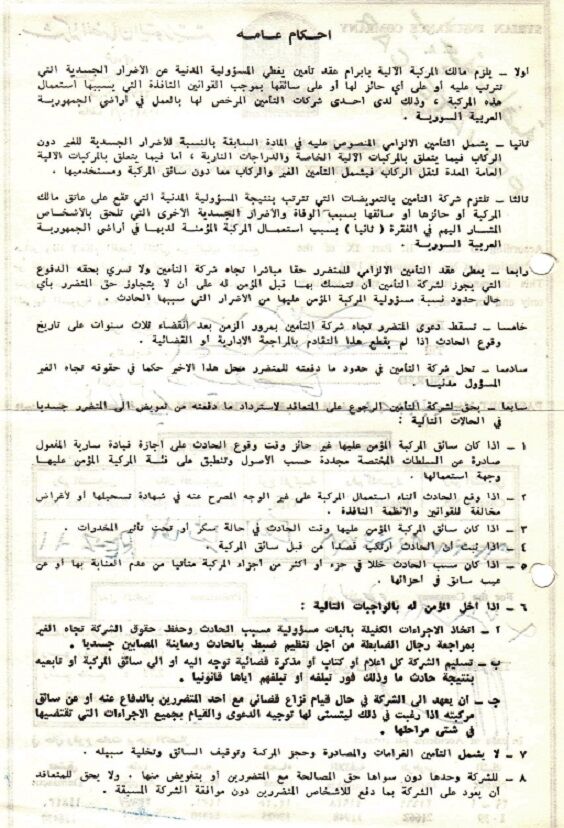 احكام عامه
اولا – يلزم مالك المركبة الآلية بابرام عقد تأمين يغطي المسؤولية المدنية عن الاضرار الجسدية التي
تترتب عليه أو على أي حائز لها أو على سائقها بموجب القوانين النافذة التي يسببها استعمال
هذه المركبة ، وذلك لدى احدى شركات التأمين المرخص لها بالعمل في أراضي الجمهورية
العربية السورية .
ثانيا – يشمل التأمين الالزامي المنصوص عليه في المادة السابقة بالنسبة للأضرار الجسدية للغير دون
الركاب فيما يتعلق بالمركبات الآلية الخاصة والدراجات النارية ، أما فيما يتعلق بالمركبات الآلية
العامة المعدة لنقل الركاب فيشمل التأمين الغير والركاب معا دون سائق المركبة ومستخدميها .
ثالثا – تلتزم شركة التأمين بالتعويضات التي تترتب بنتيجة المسؤولية المدنية التي تقع على عاتق مالك
المركبة أو حائزها أو سائقها بسبب الوفاة والأضرار الجسدية الأخرى التي تلحق بالأشخاص
المشار اليهم في الفقرة ( ثانيا ) بسبب استعمال المركبة المؤمنة لديها في أراضي الجمهورية
العربية السورية .
رابعا – يعطي عقد التأمين الالزامي للمتضرر حقا مباشرا تجاه شركة التأمين ولا تسري بحقه الدفوع
التي يجوز لشركة التأمين أن تتمسك بها قبل المؤمن له على أن لا يتجاوز حق المتضرر بأي
حال حدود نسبة مسؤولية المركبة المؤمن عليها من الأضرار التي سببها الحادث .
خامسا – تسقط دعوى المتضرر تجاه شركة التأمين بمرور الزمن بعد انقضاء ثلاث سنوات على تاريخ
وقوع الحادث اذا لم يقطع هذا التقادم بالمراجعة الادارية أو القضائية .
سادسا – تحل شركة التأمين في حدود ما دفعته للمتضرر محل هذا الاخير حكما في حقوقه تجاه الغير
المسؤول مدنيا .
سابعا – يحق لشركة التأمين الرجوع على المتعاقد لاسترداد ما دفعته من تعويض الى المتضرر جسديا
في الحالات التالية :
١ – اذا كان سائق المركبة المؤمن عليها غير حائز وقت وقوع الحادث على اجازة قيادة سارية المفعول
صادرة عن السلطات المختصة مجددة حسب الأصول وتنطبق على فئة المركبة المؤمن عليها
وجهة استعمالها .
٢ – اذا وقع الحادث اثناء استعمال المركبة على غير الوجه المصرح عنه في شهادة تسجيلها أو لأغراض
مخالفة للقوانين والأنظمة النافذة .
٣ – اذا كان سائق المركبة المؤمن عليها وقت الحادث في حالة سكر أو تحت تأثير المخدرات .
٤ – اذا ثبت أن الحادث ارتكب قصدا من قبل سائق المركبة
٥ – اذا كان سبب الحادث خللا في جزء أو أكثر من أجزاء المركبة متأتيا من عدم العناية بها أو عن
عيب سابق في أجزائها .
٦ – اذا اخل المؤمن له بالواجبات التالية :
آ – اتخاذ الاجراءات الكفيلة باثبات مسؤولية مسبب الحادث وحفظ حقوق الشركة تجاه الغير
بمراجعة رجال الضابطة من أجل تنظيم ضبط بالحادث ومعاينة المصابين جسديا .
ب – تسليم الشركة كل اعلام أو كتاب أو مذكرة قضائية توجه اليه أو الى سائق المركبة أو تابعيه
بنتيجة حادث ما وذلك فور تبلغه أو تبلغهم اياها قانونيا .
جـ – أن يعهد الى الشركة في حال قيام نزاع قضائي مع أحد المتضررين بالدفاع عنه أو عن سائق
مركبته اذا رغبت في ذلك ليتسنى لها توجيه الدعوى والقيام بجميع الاجراءات التي تقتضيها
في شتى مراحلها .
٧ – لا يشمل التأمين الغرامات والمصادرة وحجز المركبة وتوقيف السائق وتخلية سبيله .
٨ – للشركة وحدها دون سواها حق المصالحة مع المتضررين أو بتفويض منها . ولا يحق للمتعاقد
أن يعود على الشركة بما دفع للأشخاص المتضررين دون موافقة الشركة المسبقة .